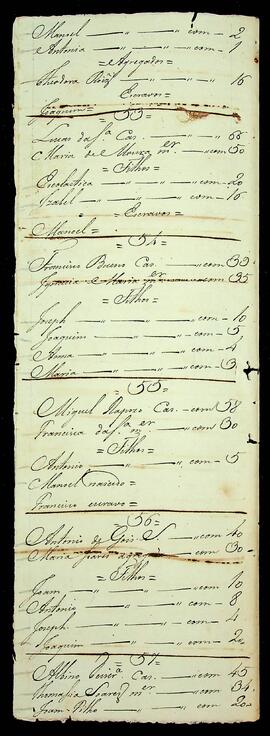 Manoel — " — " — com — 2
Antonia — " — " — com — 1
= Agregados =
Theodora Roiz — " — " — 16
Escravos =
Joaquim =
= 53 =
Lucas da S.ª Cas. — " — " — 66
Maria de m.er — " com — 50
= Filhos =
Escolastica — " — " com — 20
Izabel — " — " com — 16
= Escravos =
Manoel =
= 54 =
Francisco Bueno Cas. — " com 39
Ignacia Maria m.er — com 35
= Filhos =
Joseph — " — " com — 10
Joaquim — " — " com — 5
Anna — " — " com — 4
Maria — " — " com — 3
= 55 =
Miguel Raposo Cas. — com 58
Francisca da S.ª m.er — " com 30
= Filhos =
Antonio — " — " com — 5
Manoel nascido =
Francisco escravo =
= 56 =
Antonio de Gois S. — " com 40
Maria — com 30
= Filhos =
Joam — " — " com — 10
Antonio — " — " com — 8
Joseph — " — " com — 4
Joaquim — " — " com — 2
= 57 =
Albino Cas. — " com — 45
Thomasia Soares m.er — " com — 34
Joam Filho — " — " com — 20